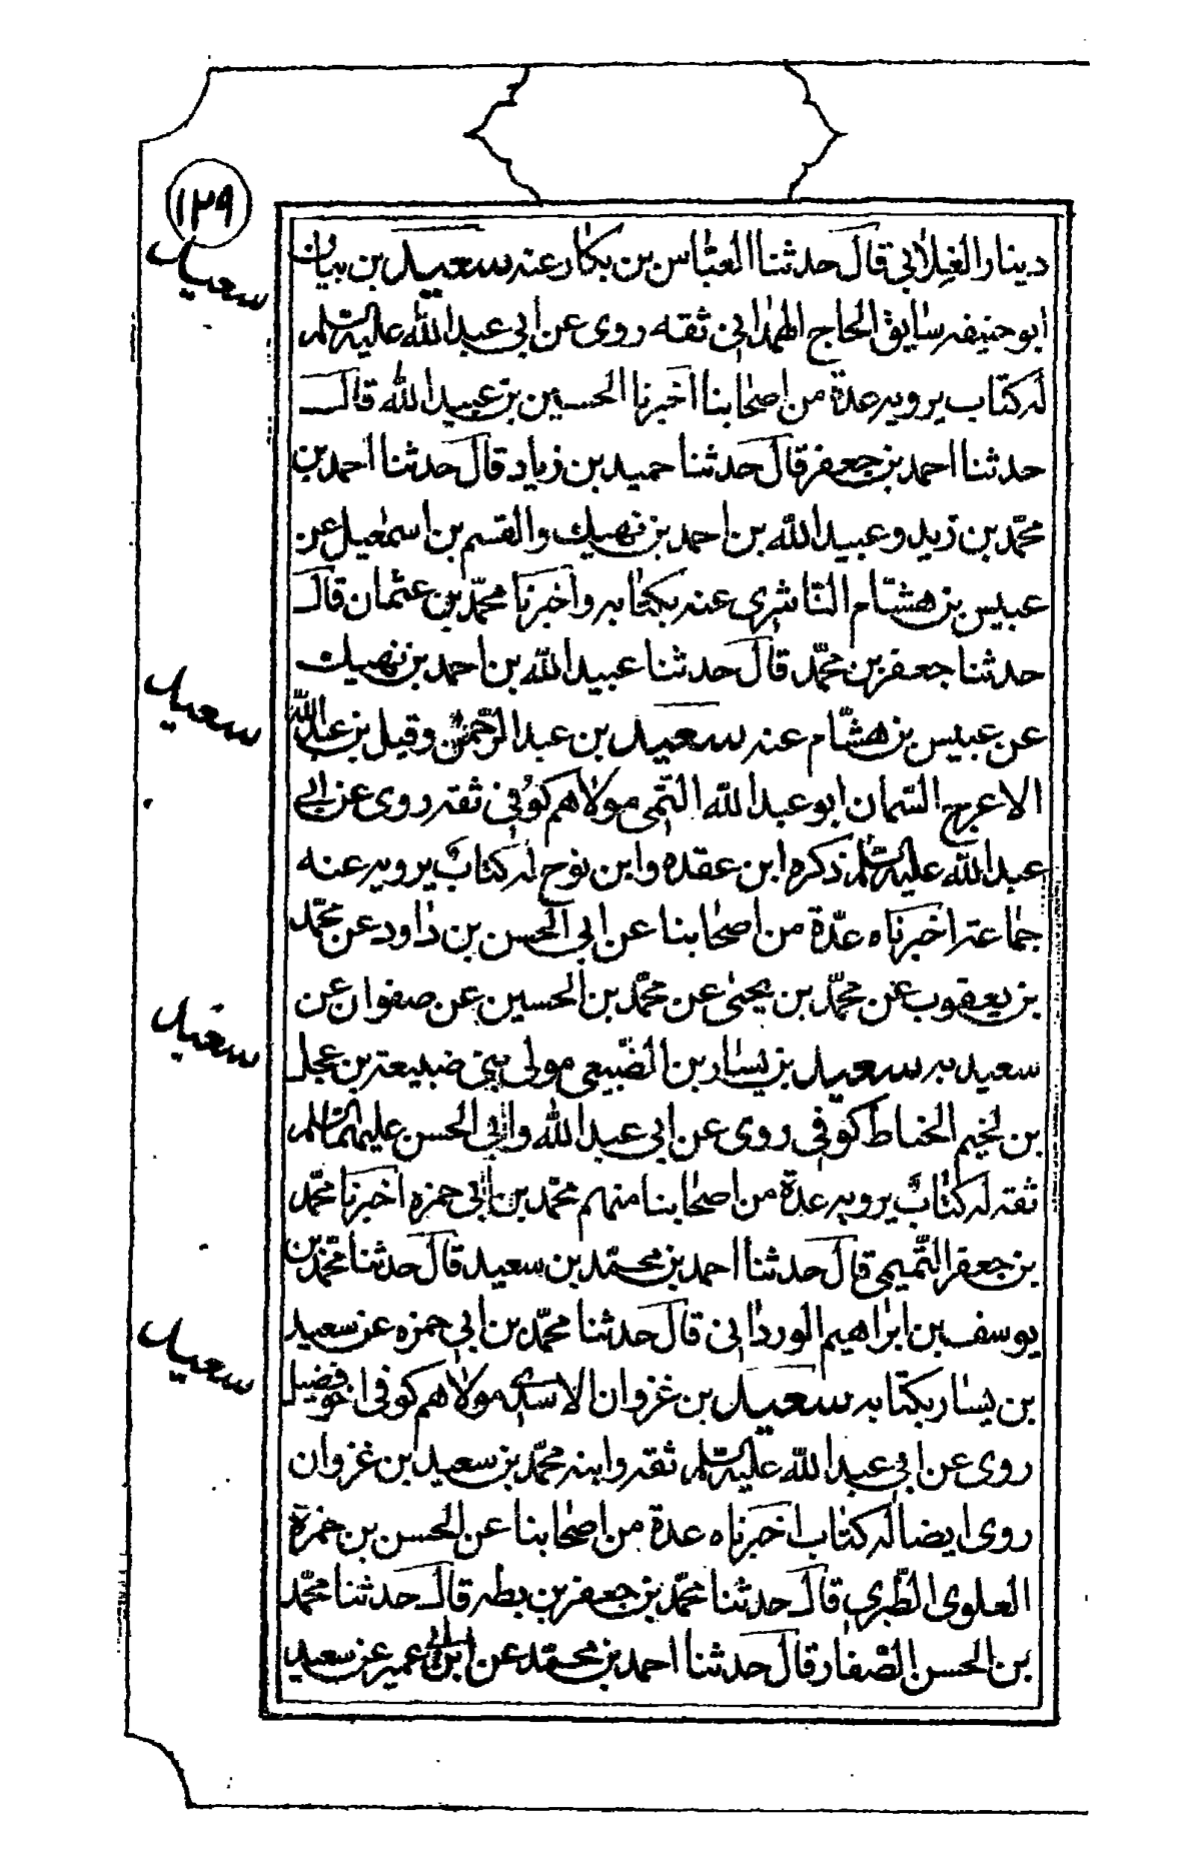 ١٢٩
دينار الغلابي قال حدثنا العباس بن بكار عنه سعيد بن بيان
سعيد
ابو حنيفه سايق الحاج الهمداني ثقه روى عن ابي عبد الله عليه السلم
له كتاب يرويه عدة من اصحابنا اخبرنا الحسين بن عبيد الله قال
حدثنا احمد بن جعفر قال حدثنا حميد بن زياد قال حدثنا احمد بن
محمد بن زيد وعبيد الله بن احمد بن نهيك والقسم بن اسمعيل عن
عبيس بن هشام الناشرى عنه بكتابه واخبرنا محمد بن عثمان قال
حدثنا جعفر بن محمد قال حدثنا عبيد الله بن احمد بن نهيك
سعيد
عن عبيس بن هشام عنه سعيد بن عبد الرحمن وقيل بن عبد الله
الاعرج السمان ابو عبد الله التيمى مولاهم كوفى ثقه روى عن ابي
عبد الله عليه السلم ذكره ابن عقده وابن نوح له كتاب يرويه عنه
جماعة اخبرناه عدة من اصحابنا عن ابي الحسن بن داود عن محمد
بن يعقوب عن محمد بن يحيى عن محمد بن الحسين عن صفوان عن
سعيد
سعيد به سعيد بن يسار بن الضبيعى مولى بنى ضبيعة بن عجل
بن لخيم الحناط كوفي روى عن ابي عبد الله وابي الحسن عليهما السلم
ثقه له كتاب يرويه عدة من اصحابنا منهم محمد بن ابي حمزه اخبرنا محمد
بن جعفر التميمى قال حدثنا احمد بن محمد بن سعيد قال حدثنا محمد بن
يوسف بن ابراهيم الوردانى قال حدثنا محمد بن ابي حمزه عن سعيد
سعيد
بن يسار بكتابه سعيد بن غزوان الاسدي مولاهم كوفى اخو فضيل
روى عن ابي عبد الله عليه السلم ثقه وابنه محمد بن سعيد بن غزوان
روى ايضا له كتاب اخبرناه عدة من اصحابنا عن الحسن بن حمزة
العلوى الطبري قال حدثنا محمد بن جعفر بن بطه قال حدثنا محمد
بن الحسن الصفار قال حدثنا احمد بن محمد عن ابن ابي عمير عن سعيد